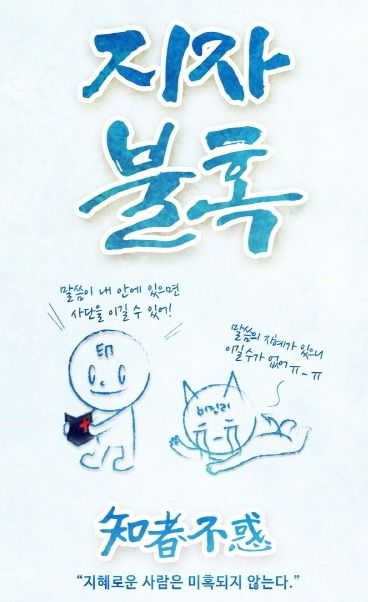 지자
불혹
말씀이 내 안에 있으면
사단을 이길 수 있어!
印
말씀의 지혜가 있으니
이길수가 없어 ㅠ-ㅠ
비진리
知者不惑
“지혜로운 사람은 미혹되지 않는다.”